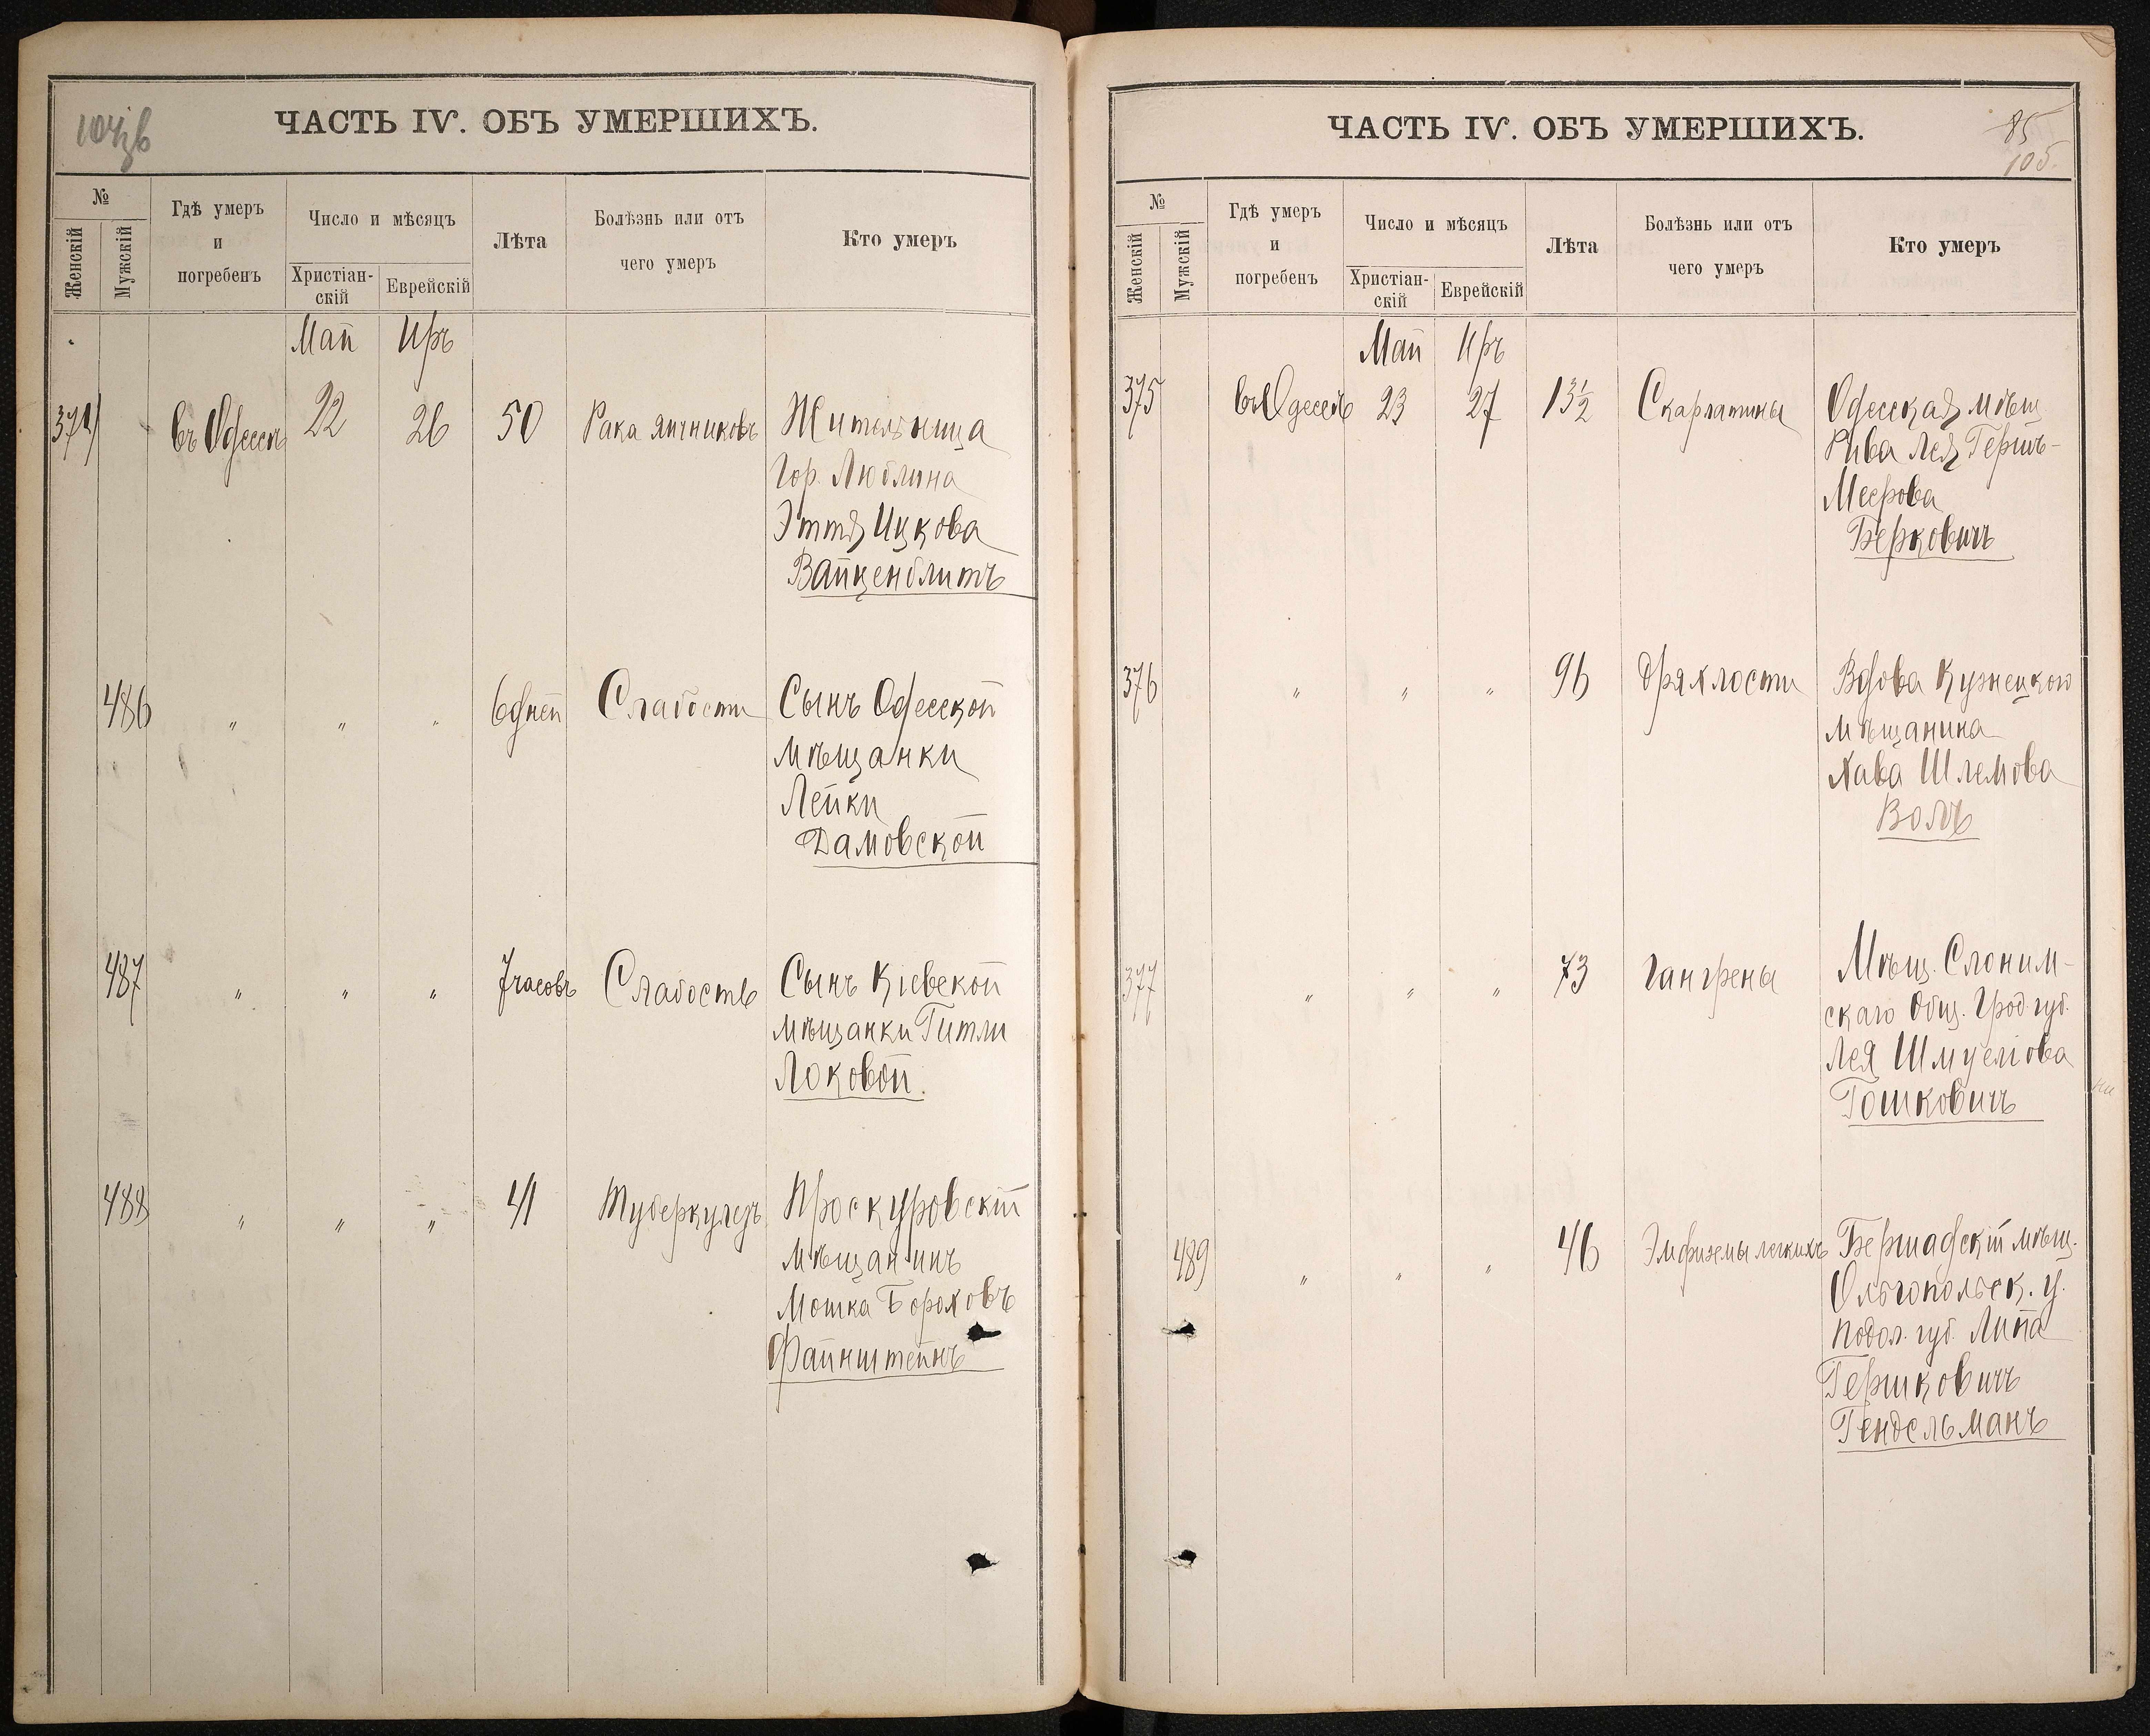 ЧАСТЬ IV. ОБЪ УМЕРШИХЪ.
№
Женскій
Мужскій
Гдѣ умеръ
и
погребенъ
Число и мѣсяцъ
Христіан-
скій
Еврейскій
Лѣта
Болѣзнь или отъ
чего умеръ
Кто умеръ
Май Иръ
374 въ Одессѣ 22 26 50 Рака яичниковъ Жительница
Гор. Люблина
Эття Ицкова
Вайценблитъ
486 " " " 6 дней Слабости Сынъ Одесской
мѣщанки
Лейки
Дамовской
487 " " " 7 часовъ Слабость Сынъ Кіевской
мѣщанки Гитли
Локовой.
488 " " " 41 Туберкулезъ Проскуровскій
Мѣщанинъ
Мошка Бороховъ
Файнштейнъ
ЧАСТЬ IV. ОБЪ УМЕРШИХЪ.
85
105.
№
Женскій
Мужскій
Гдѣ умеръ
и
погребенъ
Число и мѣсяцъ
Христіан-
скій
Еврейскій
Лѣта
Болѣзнь или отъ
чего умеръ
Кто умеръ
Май Иръ
375 въ Одессѣ 23 27 13½ Скарлатины Одесская мѣщ
Рива Лея Гершъ-
Меерова
Берковичъ
376 " " " 96 Дряхлости Вдова Кузнецкого
мѣщанина
Хава Шлемова
Волъ
377 " " " 73 Гангрены Мѣщ. Слоним-
скаго Общ. Грод. губ.
Лея Шмуелiова
Гошковичъ
489 " " " 46 Эмфиземы легкихъ Бершадскій мѣщ.
Ольгопольск. у.
Подол. губ. Липа
Гершковичъ
Гендельманъ